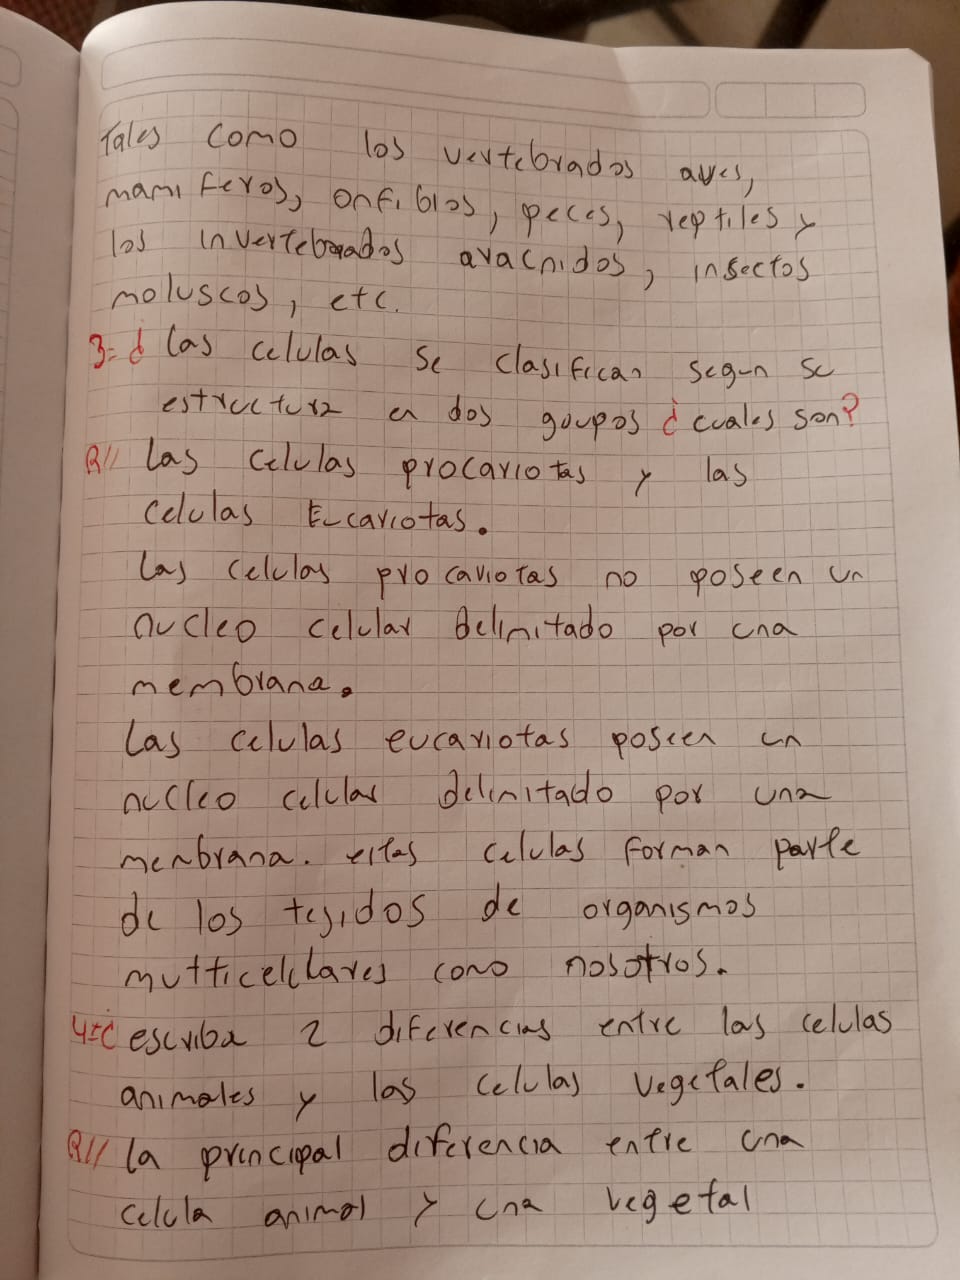 Tales como los vertebrados aves,
mamiferos, anfibios, peces, reptiles y
los invertebrados aracnidos, insectos
moluscos, etc.
3= ¿ Las celulas se clasifican segun su
estructura en dos goupos ¿ cuales son?
R// Las celulas procariotas y las
celulas Eucariotas.
Las celulas procariotas no poseen un
nucleo celular delimitado por una
membrana.
Las celulas eucariotas poseen un
nucleo celular delimitado por una
menbrana. estas celulas forman parte
de los tejidos de organismos
multicelulares como nosotros.
4=¿ escriba 2 diferencias entre las celulas
animales y las celulas vegetales.
R// la principal diferencia entre una
celula animal y una vegetal